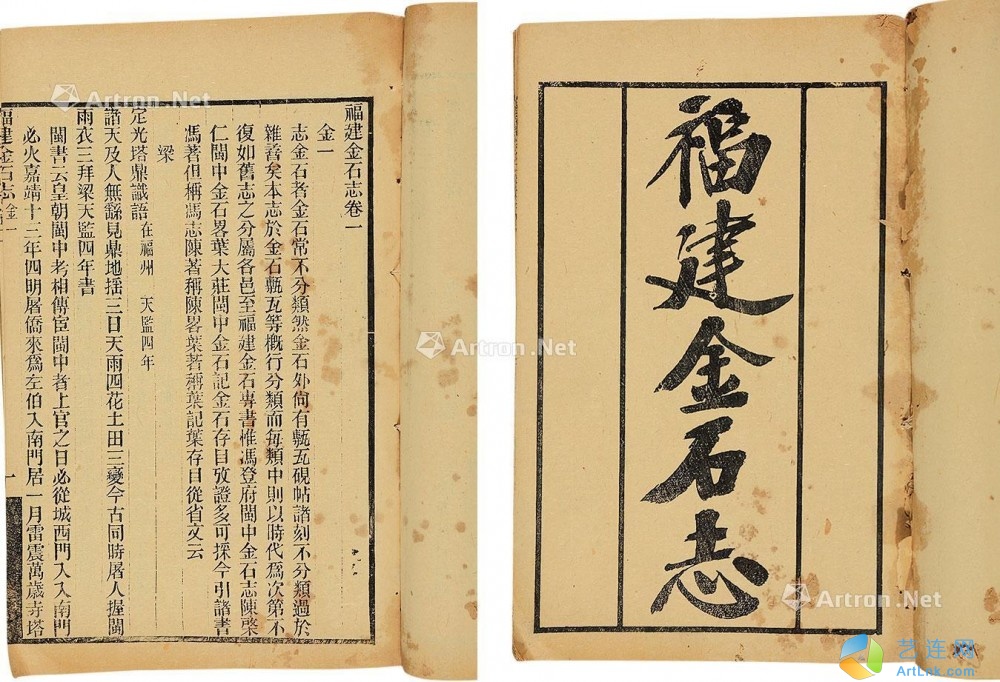 福建金石志
福建金石志卷一
金一
志金石者金石常不分類然金石外尙有甎瓦硯帖諸刻不分類過於
雜蓍矣本志於金石甎瓦等槪行分類而每類中則以時代爲次第不
復如舊志之分屬各邑至福建金石專書惟馮登府閩中金石志陳棨
仁閩中金石畧葉大莊閩中金石記金石存目攷證多可採今引諸書
馮著但稱馮志陳著稱陳畧葉著稱葉記葉存目從省文云
梁
定光塔鼎識語 在福州 天監四年
諸天及人無繇見鼎地揺三日天雨四花土田三變今古同時屠人握閩
雨衣三拜梁天監四年書
閩書云皇朝閩中考相傳宦閩中者上官之日必從城西門入入南門
必火嘉靖十三年四明屠僑來爲左伯入南門居一月雷震萬歲寺塔
福建金石志 金一
一
Artron.Net
Artron.Net
Artron.Net
艺连网
ArtLnk.com